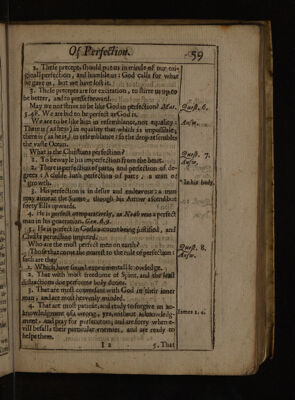 Of Perfection.
59
2. These precepts should put us in minde of our ori-
ginall perfection, and humble us: God calls for what
he gave us, but we have lost it.
3. These precepts are for excitation, to stirre us up to
be better, and to presse forward.
May we not strive to be like God in perfection? Mat.
Quest. 6.
5.48. We are bid to be perfect as God is.
We are to be like him in resemblance, not equality:
Answ.
There is (as less) in equality that which is impossible;
there is (as here) in resemblance: so the drop resembles
the vaste Ocean.
What is the Christians perfection?
Quest. 7.
1. To bewayle his imperfection from the heart.
Answ.
2. There is perfection of parts, and perfection of de-
grees: A childe hath perfection of parts; a man of
growth.
3. His perfection is in desire and endeavour: a man
may aime at the Sunne, though his Arrow ascend but
forty Ells upwards.
4. He is perfect comparatively, as Noah was a perfect
man in his generation. Gen. 6.9.
5. He is perfect in Gods account being justified, and
Christs perfection imputed.
Who are the most perfect men on earth?
Quest. 8.
Those that come the nearest to the rule of perfection:
Answ.
such are they,
1. Which have experimentall knowledge.
2. That with most freedome of Spirit, and
distractions doe performe holy duties.
3. That are most conversant with God in their inner
man, and are most heavenly minded.
4. That are most patient, and ready to forgive in ac-
knowledgment of a wrong, yea, without acknowledg-
James 1. 4.
ment, and pray for persecutors, and are sorry when e-
vill befalls their particular enemies, and are ready to
helpe them.
I 2
5. That